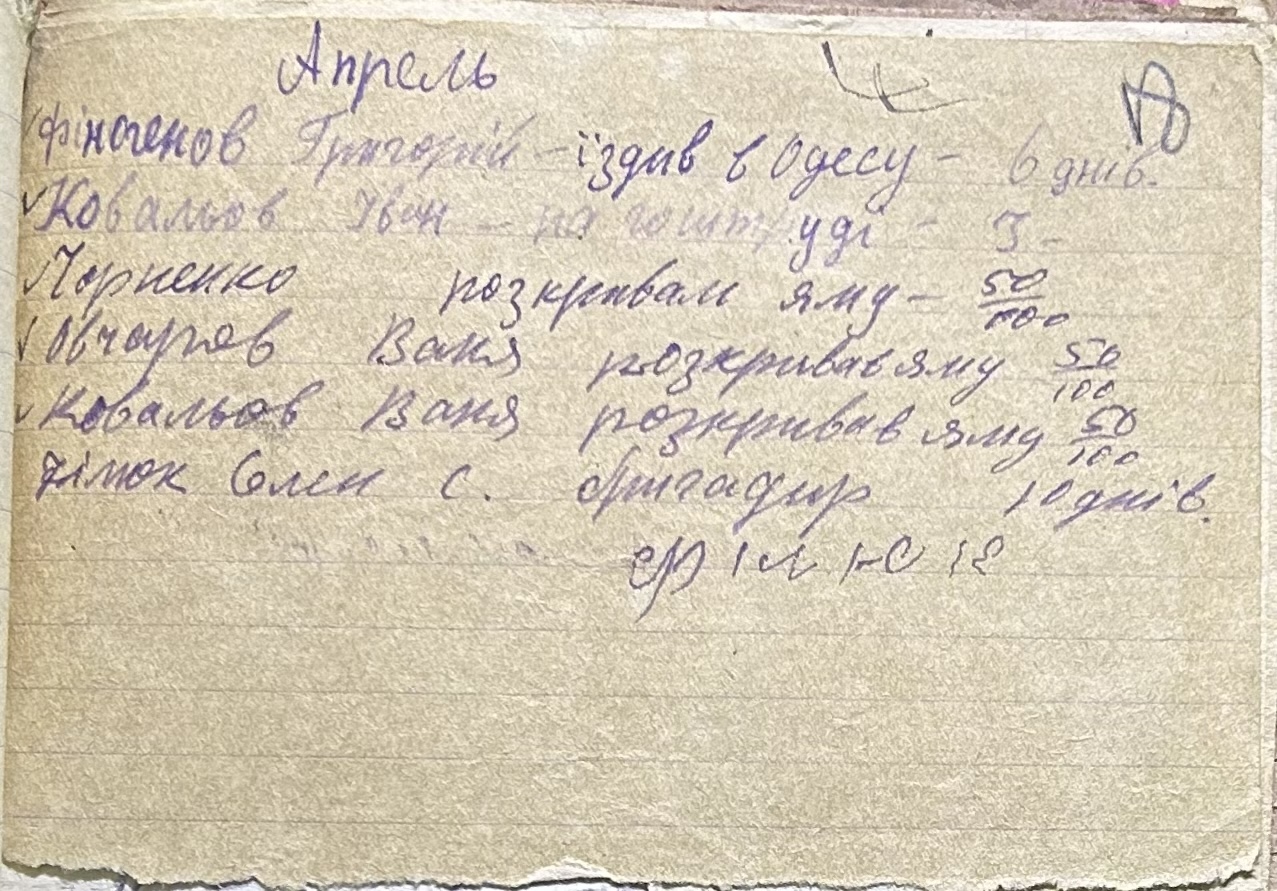 Апрель
Фіногенов Григорій - їздив в Одесу - 6 днів.
Ковальов Іван - на - 3 -
Чорненко розкривали яму - 50/100
Овчаров Ваня розкривав яму 50/100
Ковальов Ваня розкривав яму 50/100
с. бригадир 10 днів.